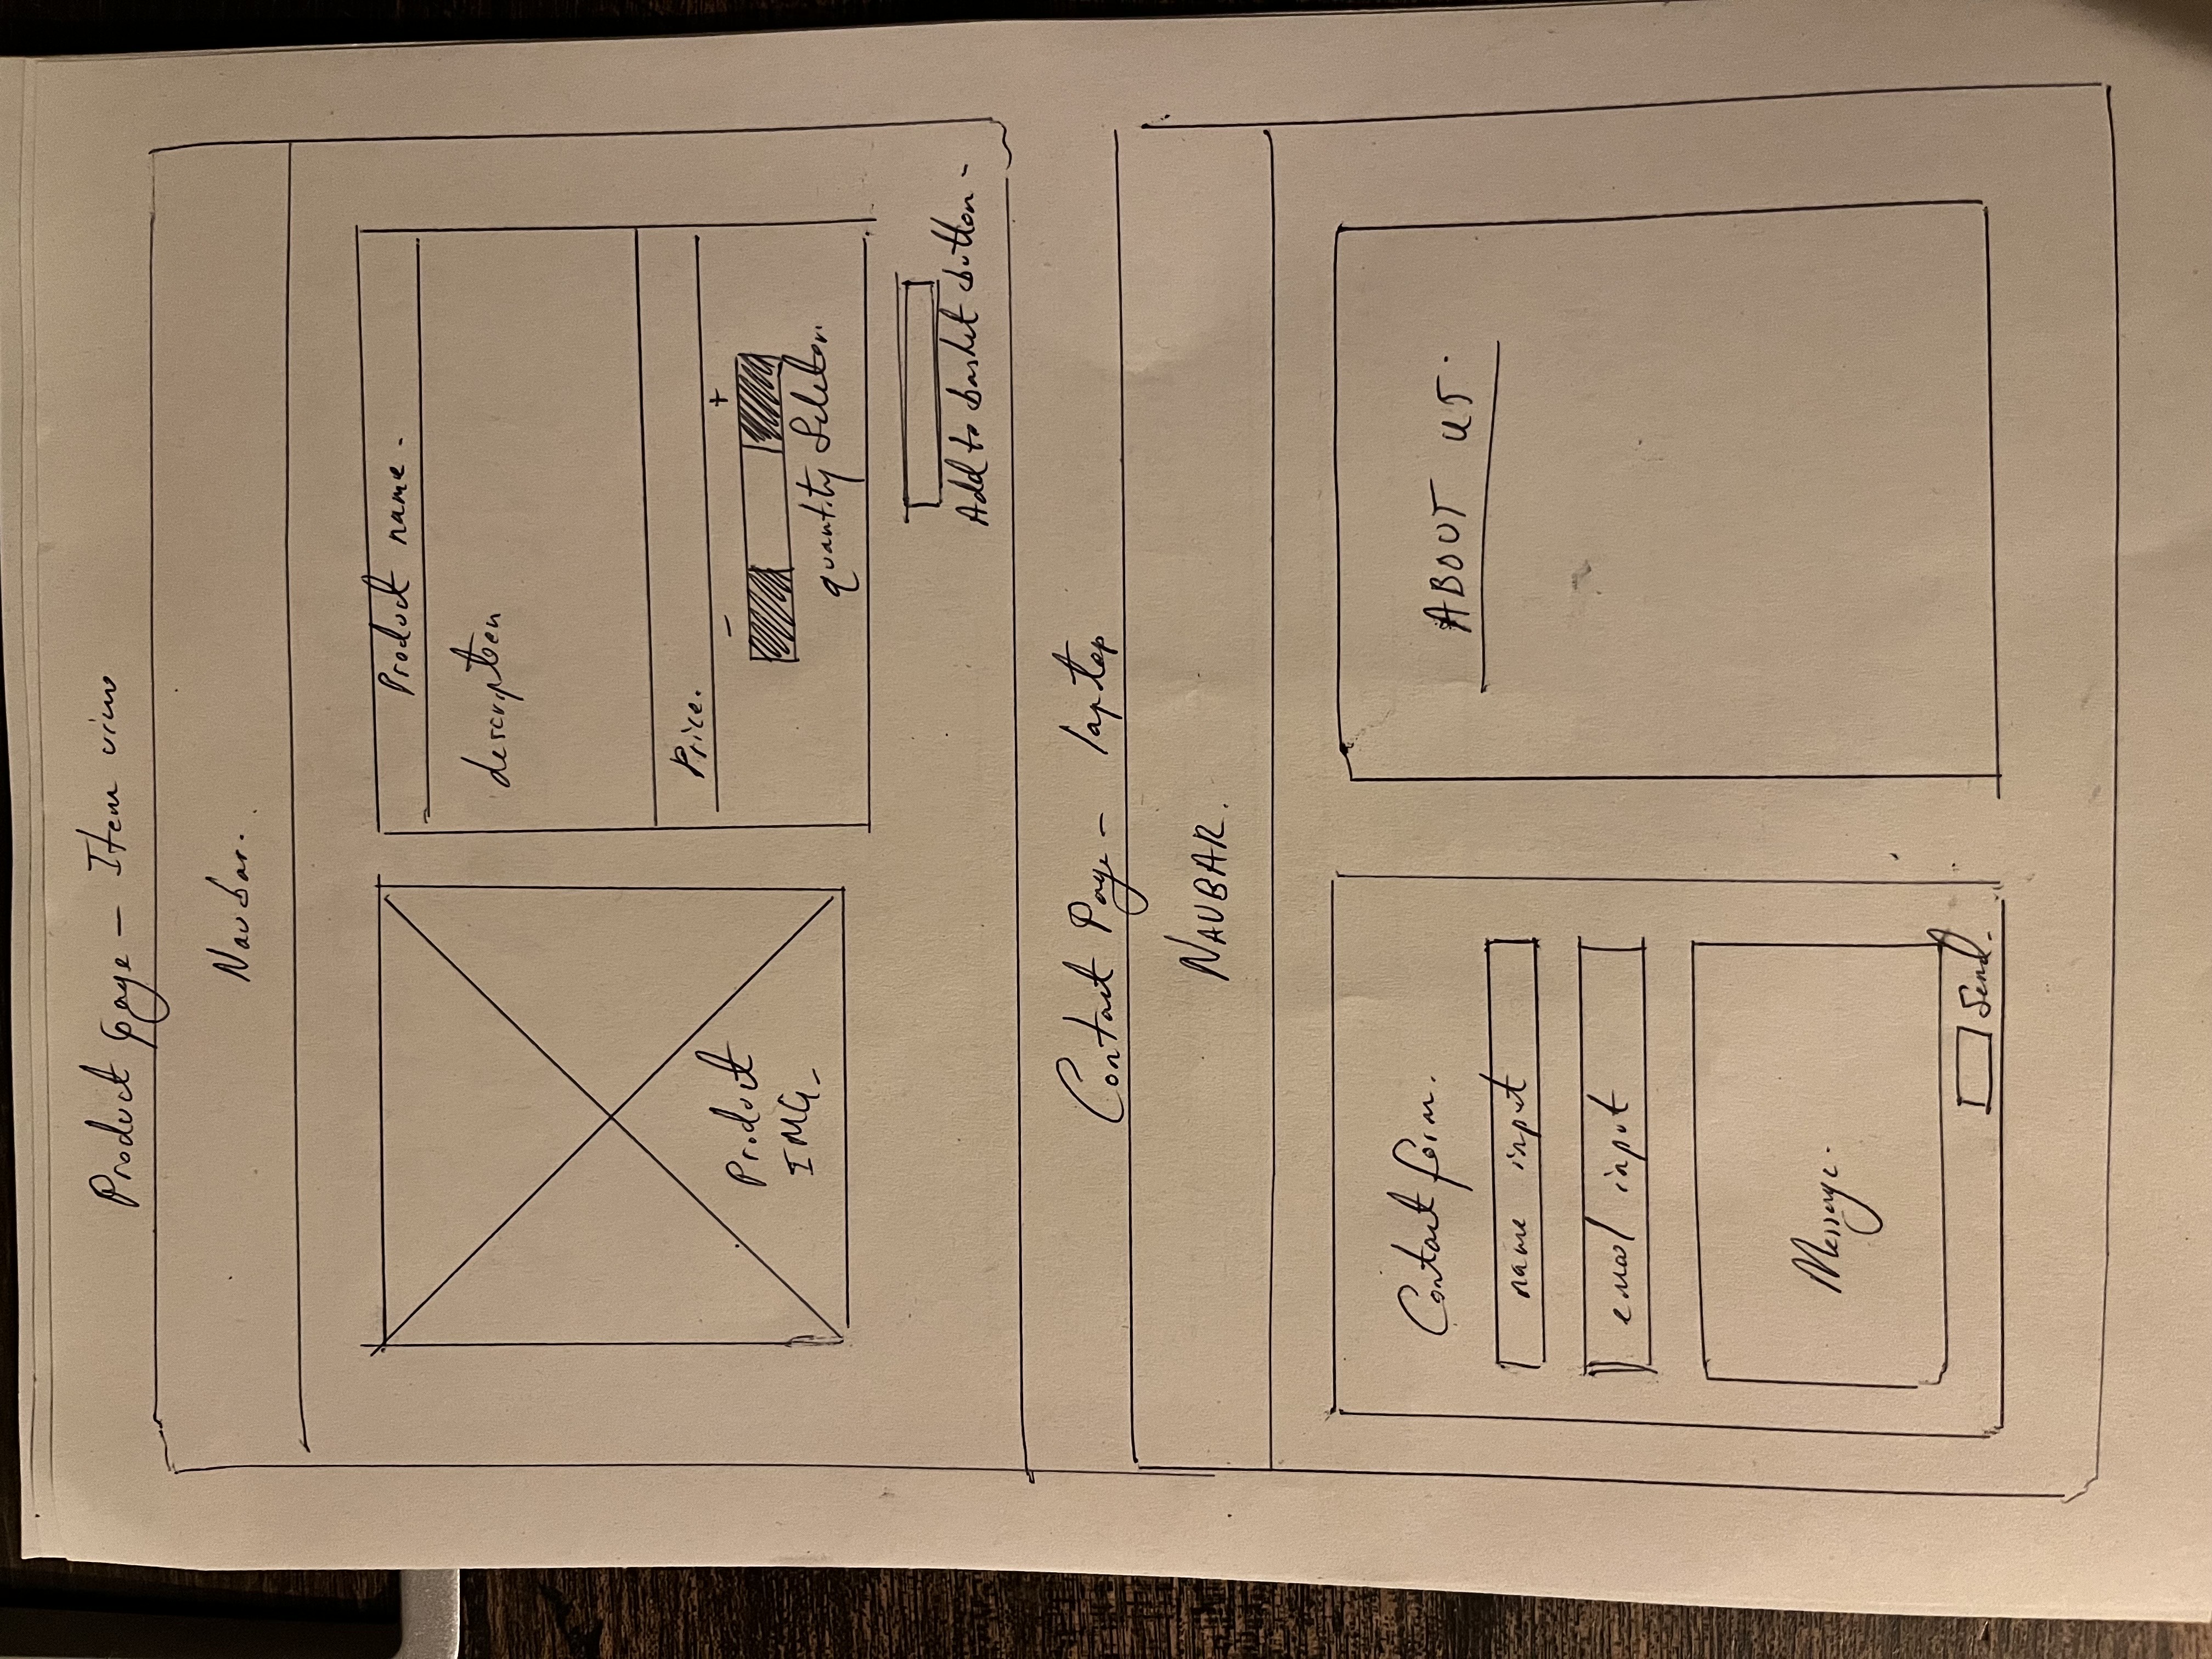 Product page - Item view
Navbar.
Product name -
description
Price.
- +
quantity Selector.
Product
IMG_
Add to basket button -
Contact Page - laptop
NAVBAR.
Contact form.
name input
email input
Message.
Send.
ABOUT US.